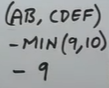 (AB, CDEF)
- MIN (9,10)
- 9